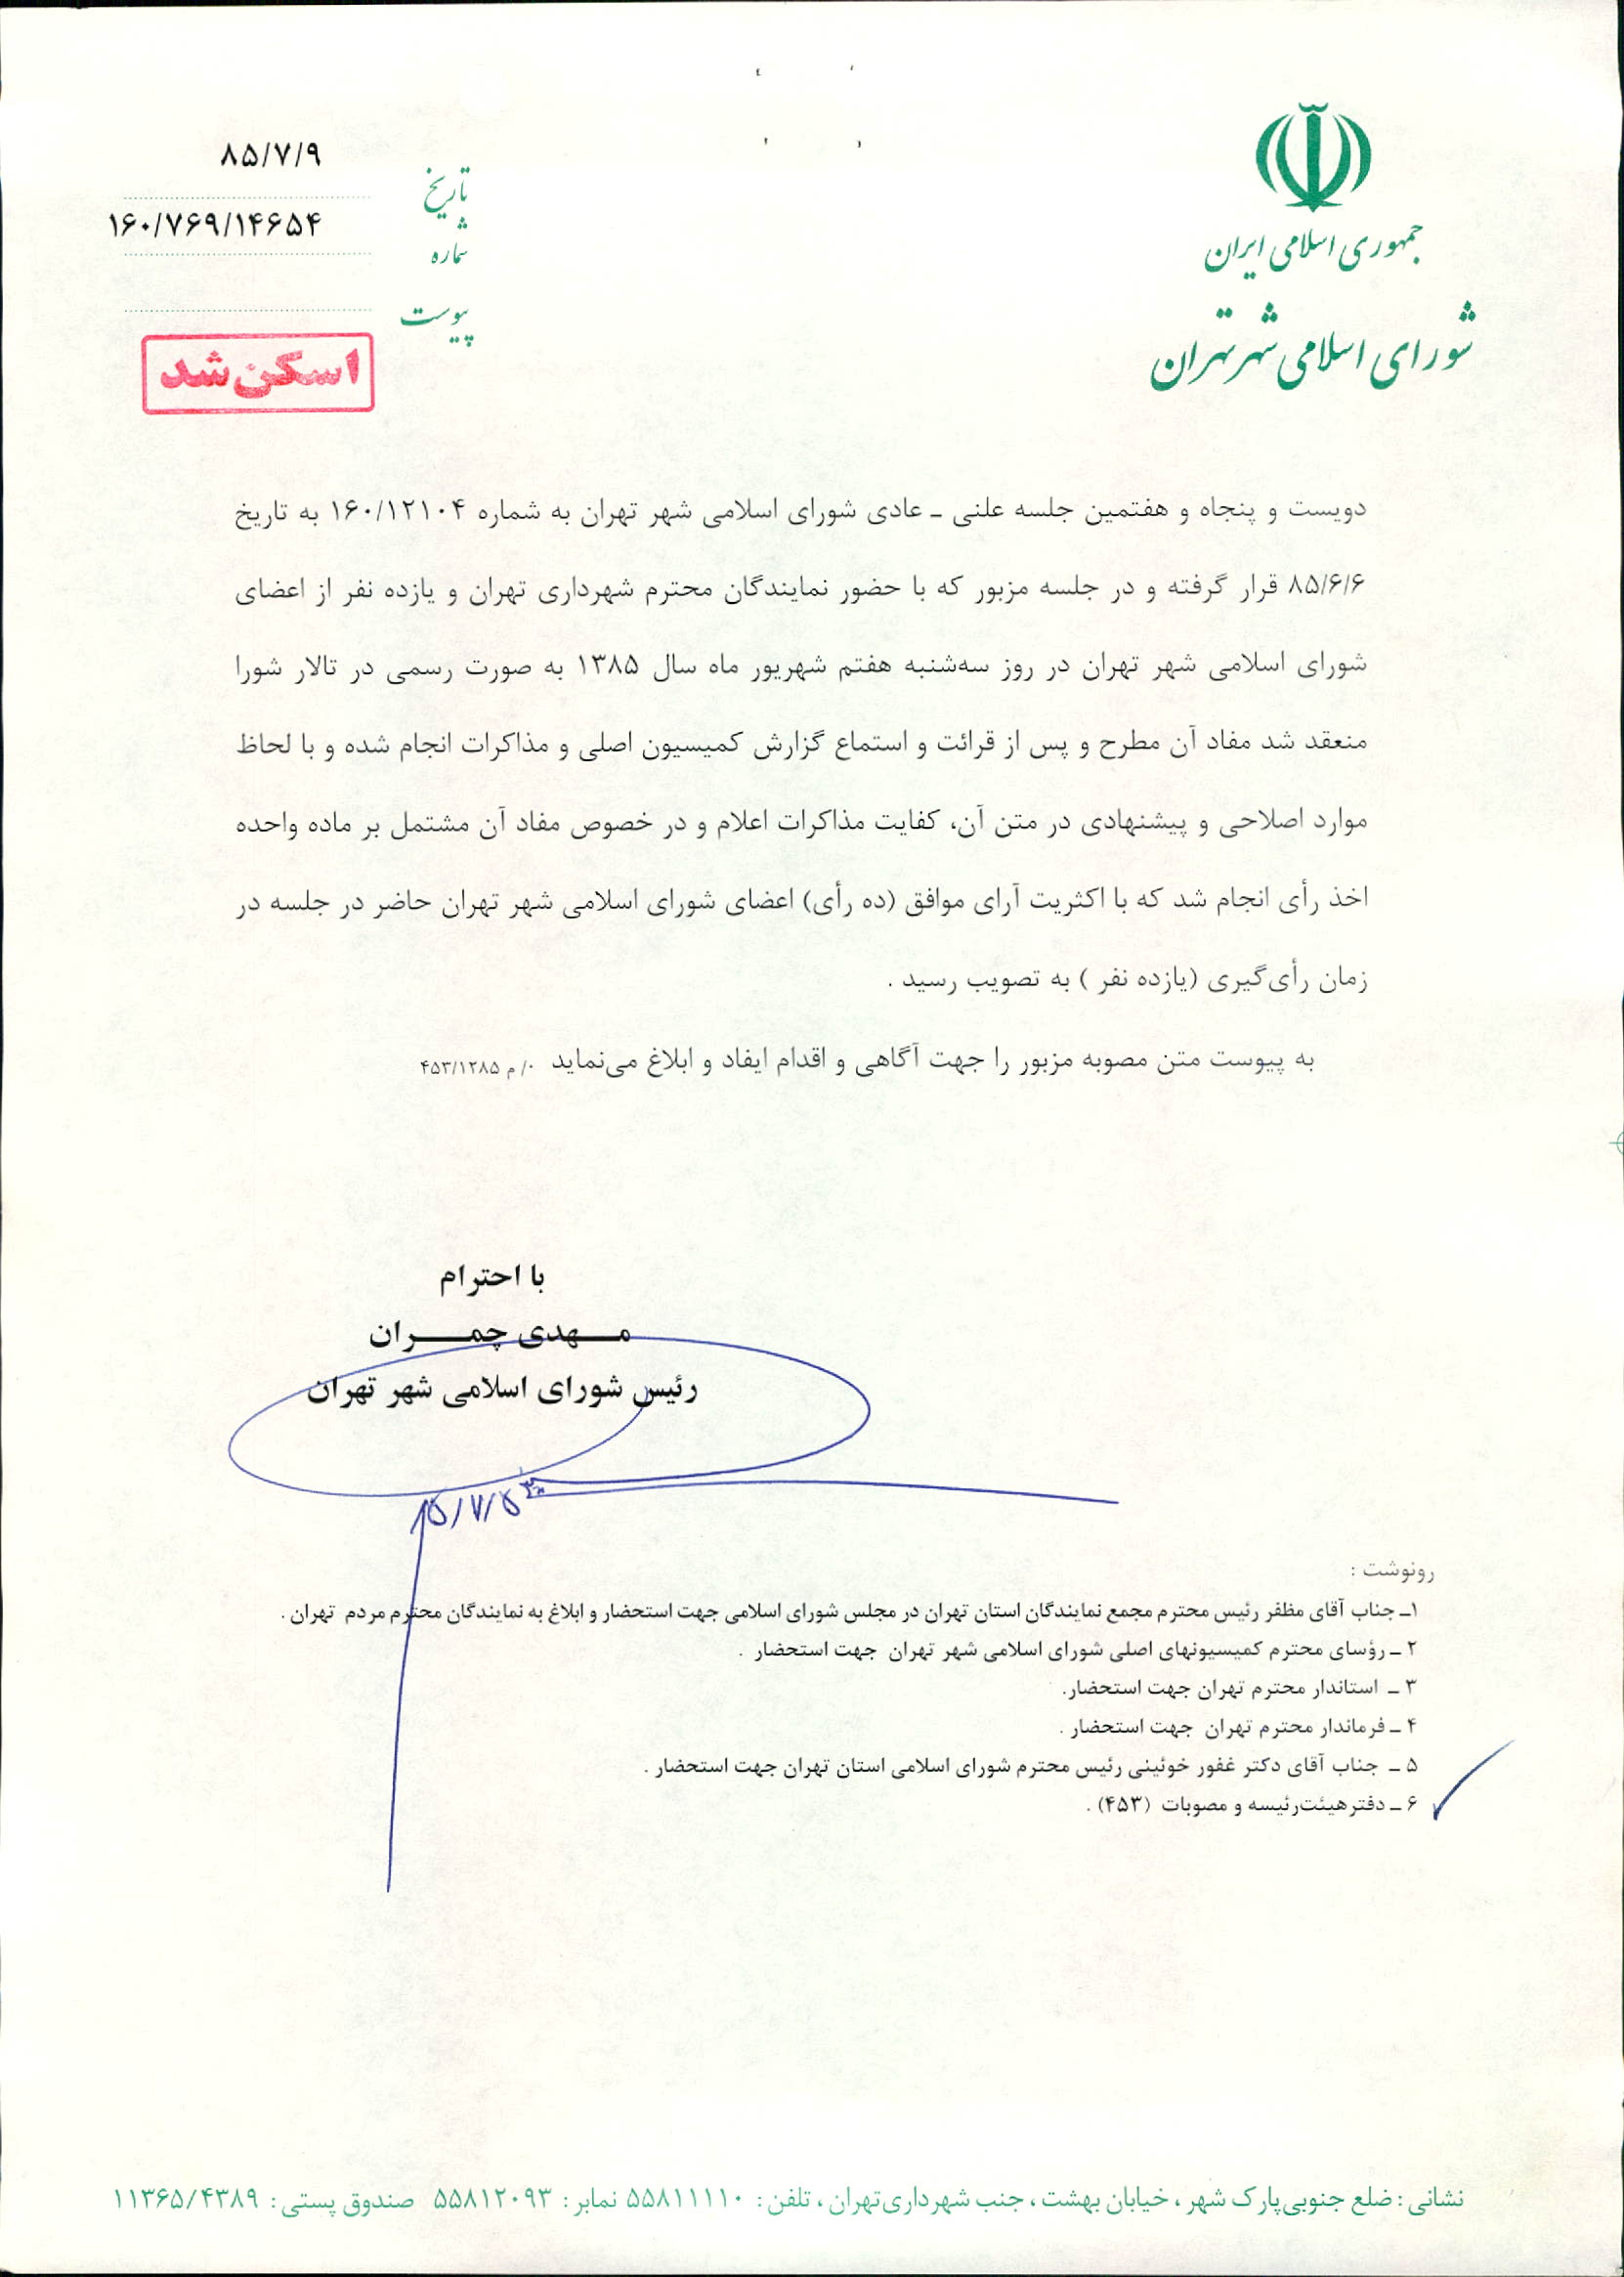 جمهوری اسلامی ایران
شورای اسلامی شهر تهران
تاریخ ۸۵/۷/۹
شماره ۱۶۰/۷۶۹/۱۴۶۵۴
پیوست
اسکن شد
دویست و پنجاه و هفتمین جلسه علنی ـ عادی شورای اسلامی شهر تهران به شماره ۱۶۰/۱۲۱۰۴ به تاریخ
۸۵/۶/۶ قرار گرفته و در جلسه مزبور که با حضور نمایندگان محترم شهرداری تهران و یازده نفر از اعضای
شورای اسلامی شهر تهران در روز سه‌شنبه هفتم شهریور ماه سال ۱۳۸۵ به صورت رسمی در تالار شورا
منعقد شد مفاد آن مطرح و پس از قرائت و استماع گزارش کمیسیون اصلی و مذاکرات انجام شده و با لحاظ
موارد اصلاحی و پیشنهادی در متن آن، کفایت مذاکرات اعلام و در خصوص مفاد آن مشتمل بر ماده واحده
اخذ رأی انجام شد که با اکثریت آرای موافق (ده رأی) اعضای شورای اسلامی شهر تهران حاضر در جلسه در
زمان رأی‌گیری (یازده نفر ) به تصویب رسید .
به پیوست متن مصوبه مزبور را جهت آگاهی و اقدام ایفاد و ابلاغ می‌نماید ۰/ م ۴۵۳/۱۲۸۵
با احترام
مـــهدی چمـــــران
رئیس شورای اسلامی شهر تهران
۸۵/۷/۵
رونوشت :
۱ـ جناب آقای مظفر رئیس محترم مجمع نمایندگان استان تهران در مجلس شورای اسلامی جهت استحضار و ابلاغ به نمایندگان محترم مردم تهران .
۲ ـ رؤسای محترم کمیسیونهای اصلی شورای اسلامی شهر تهران جهت استحضار .
۳ ـ استاندار محترم تهران جهت استحضار.
۴ ـ فرماندار محترم تهران جهت استحضار .
۵ ـ جناب آقای دکتر غفور خوئینی رئیس محترم شورای اسلامی استان تهران جهت استحضار .
۶ ـ دفتر هیئت‌رئیسه و مصوبات (۴۵۳) .
نشانی : ضلع جنوبی پارک شهر ، خیابان بهشت ، جنب شهرداری تهران ، تلفن : ۵۵۸۱۱۱۱۰ نمابر : ۵۵۸۱۲۰۹۳ صندوق پستی : ۱۱۳۶۵/۴۳۸۹